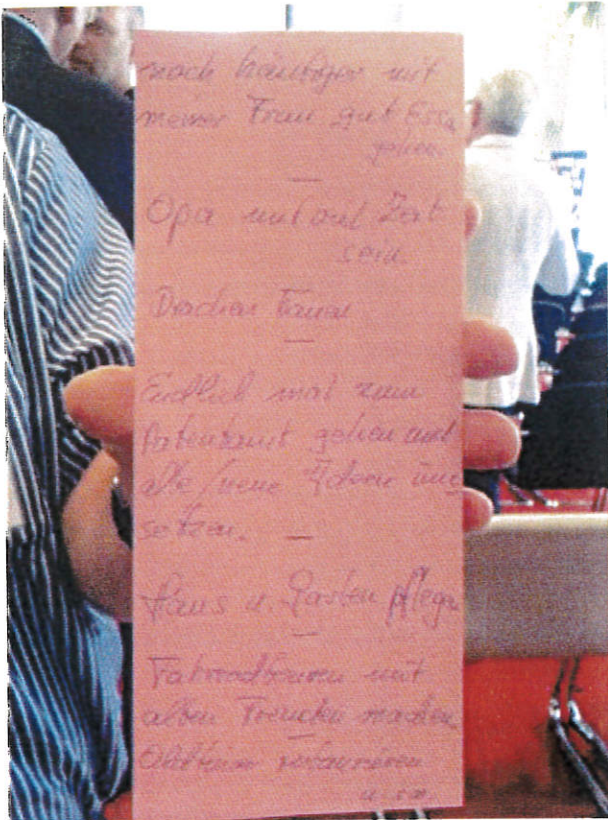 noch häufiger mit
meiner Frau gut Essen
gehen.
Opa mit auf Zeit
sein.
Drachen bauen
Endlich mal zum
Patentamt gehen und
alle/neue Ideen um
setzen.
Haus u. Garten pflegen
Fahrradtouren mit
alten Freunden machen
Oldtimer restaurieren
u.s.w.